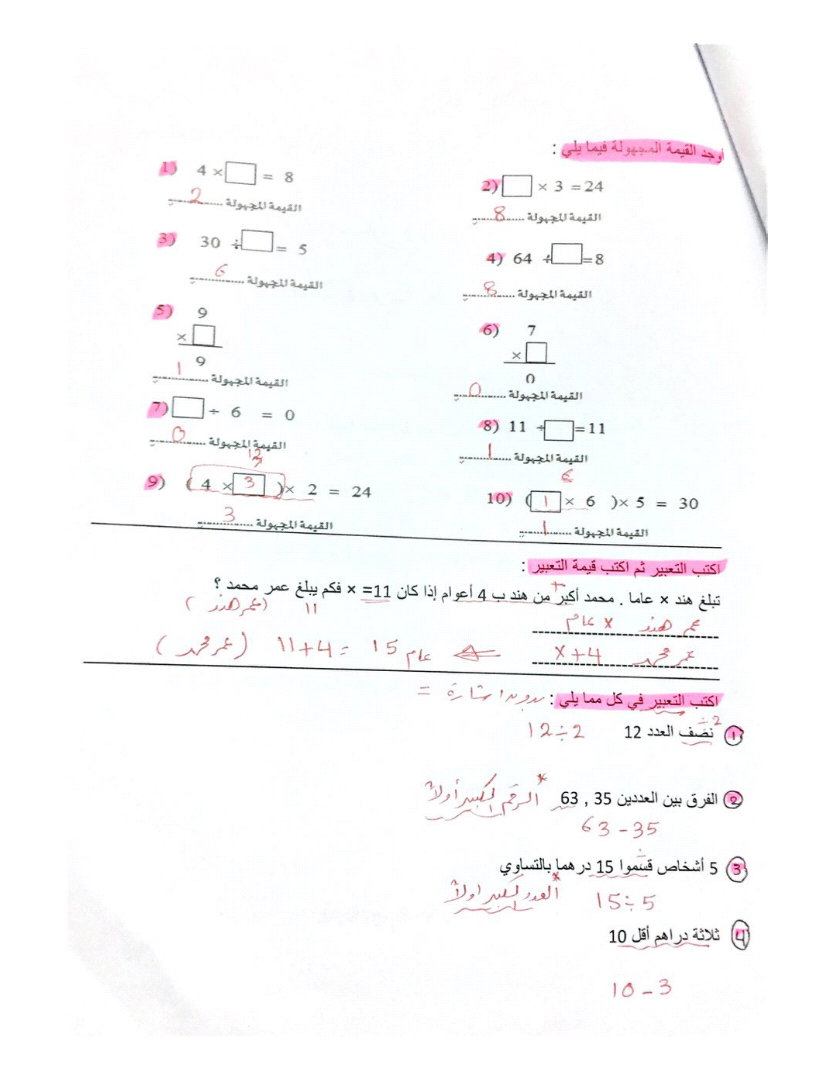 أوجد القيمة المجهولة فيما يلي :
1) 4 × □ = 8
القيمة المجهولة ........ 2
2) □ × 3 = 24
القيمة المجهولة ........ 8
3) 30 ÷ □ = 5
القيمة المجهولة ........ 6
4) 64 ÷ □ = 8
القيمة المجهولة ........ 8
5) 9
× □
9
القيمة المجهولة ........ 1
6) 7
× □
0
القيمة المجهولة ........ 0
7) □ ÷ 6 = 0
القيمة المجهولة ........ 0
8) 11 ÷ □ = 11
القيمة المجهولة ........ 1
12
9) ( 4 × 3 ) × 2 = 24
القيمة المجهولة ........ 3
6
10) ( 1 × 6 ) × 5 = 30
القيمة المجهولة ........ 1
اكتب التعبير ثم اكتب قيمة التعبير :
+
تبلغ هند × عاما . محمد أكبر من هند ب 4 أعوام إذا كان 11= × فكم يبلغ عمر محمد ؟
11 (عمر هند)
عمر هند x عام
عمر محمد x+4
11+4 = 15 عام (عمر محمد)
اكتب التعبير في كل مما يلي : بدون اشارة =
÷2
1 نصف العدد 12 12÷2
2 الفرق بين العددين 35 , 63 * الرقم الكبير أولاً
63-35
÷
3 5 أشخاص قسموا 15 درهما بالتساوي
15÷5 * العدد الكبير اولاً
4 ثلاثة دراهم أقل 10
10-3